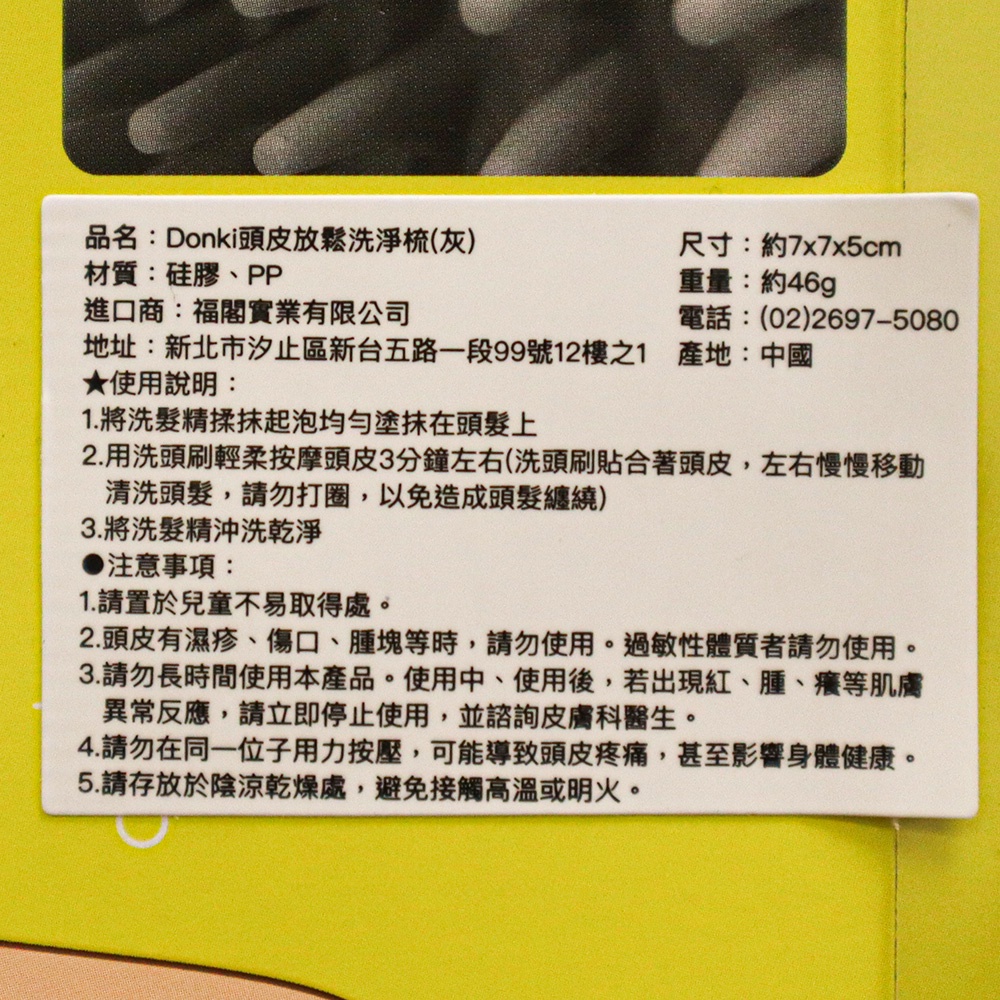 品名：Donki頭皮放鬆洗淨梳(灰)
尺寸：約7x7x5cm
材質：硅膠、PP
重量：約46g
進口商：福閣實業有限公司
電話：(02)2697-5080
地址：新北市汐止區新台五路一段99號12樓之1
產地：中國
★使用說明：
1.將洗髮精揉抹起泡均勻塗抹在頭髮上
2.用洗頭刷輕柔按摩頭皮3分鐘左右(洗頭刷貼合著頭皮，左右慢慢移動
清洗頭髮，請勿打圈，以免造成頭髮纏繞)
3.將洗髮精沖洗乾淨
●注意事項：
1.請置於兒童不易取得處。
2.頭皮有濕疹、傷口、腫塊等時，請勿使用。過敏性體質者請勿使用。
3.請勿長時間使用本產品。使用中、使用後，若出現紅、腫、癢等肌膚
異常反應，請立即停止使用，並諮詢皮膚科醫生。
4.請勿在同一位子用力按壓，可能導致頭皮疼痛，甚至影響身體健康。
5.請存放於陰涼乾燥處，避免接觸高溫或明火。